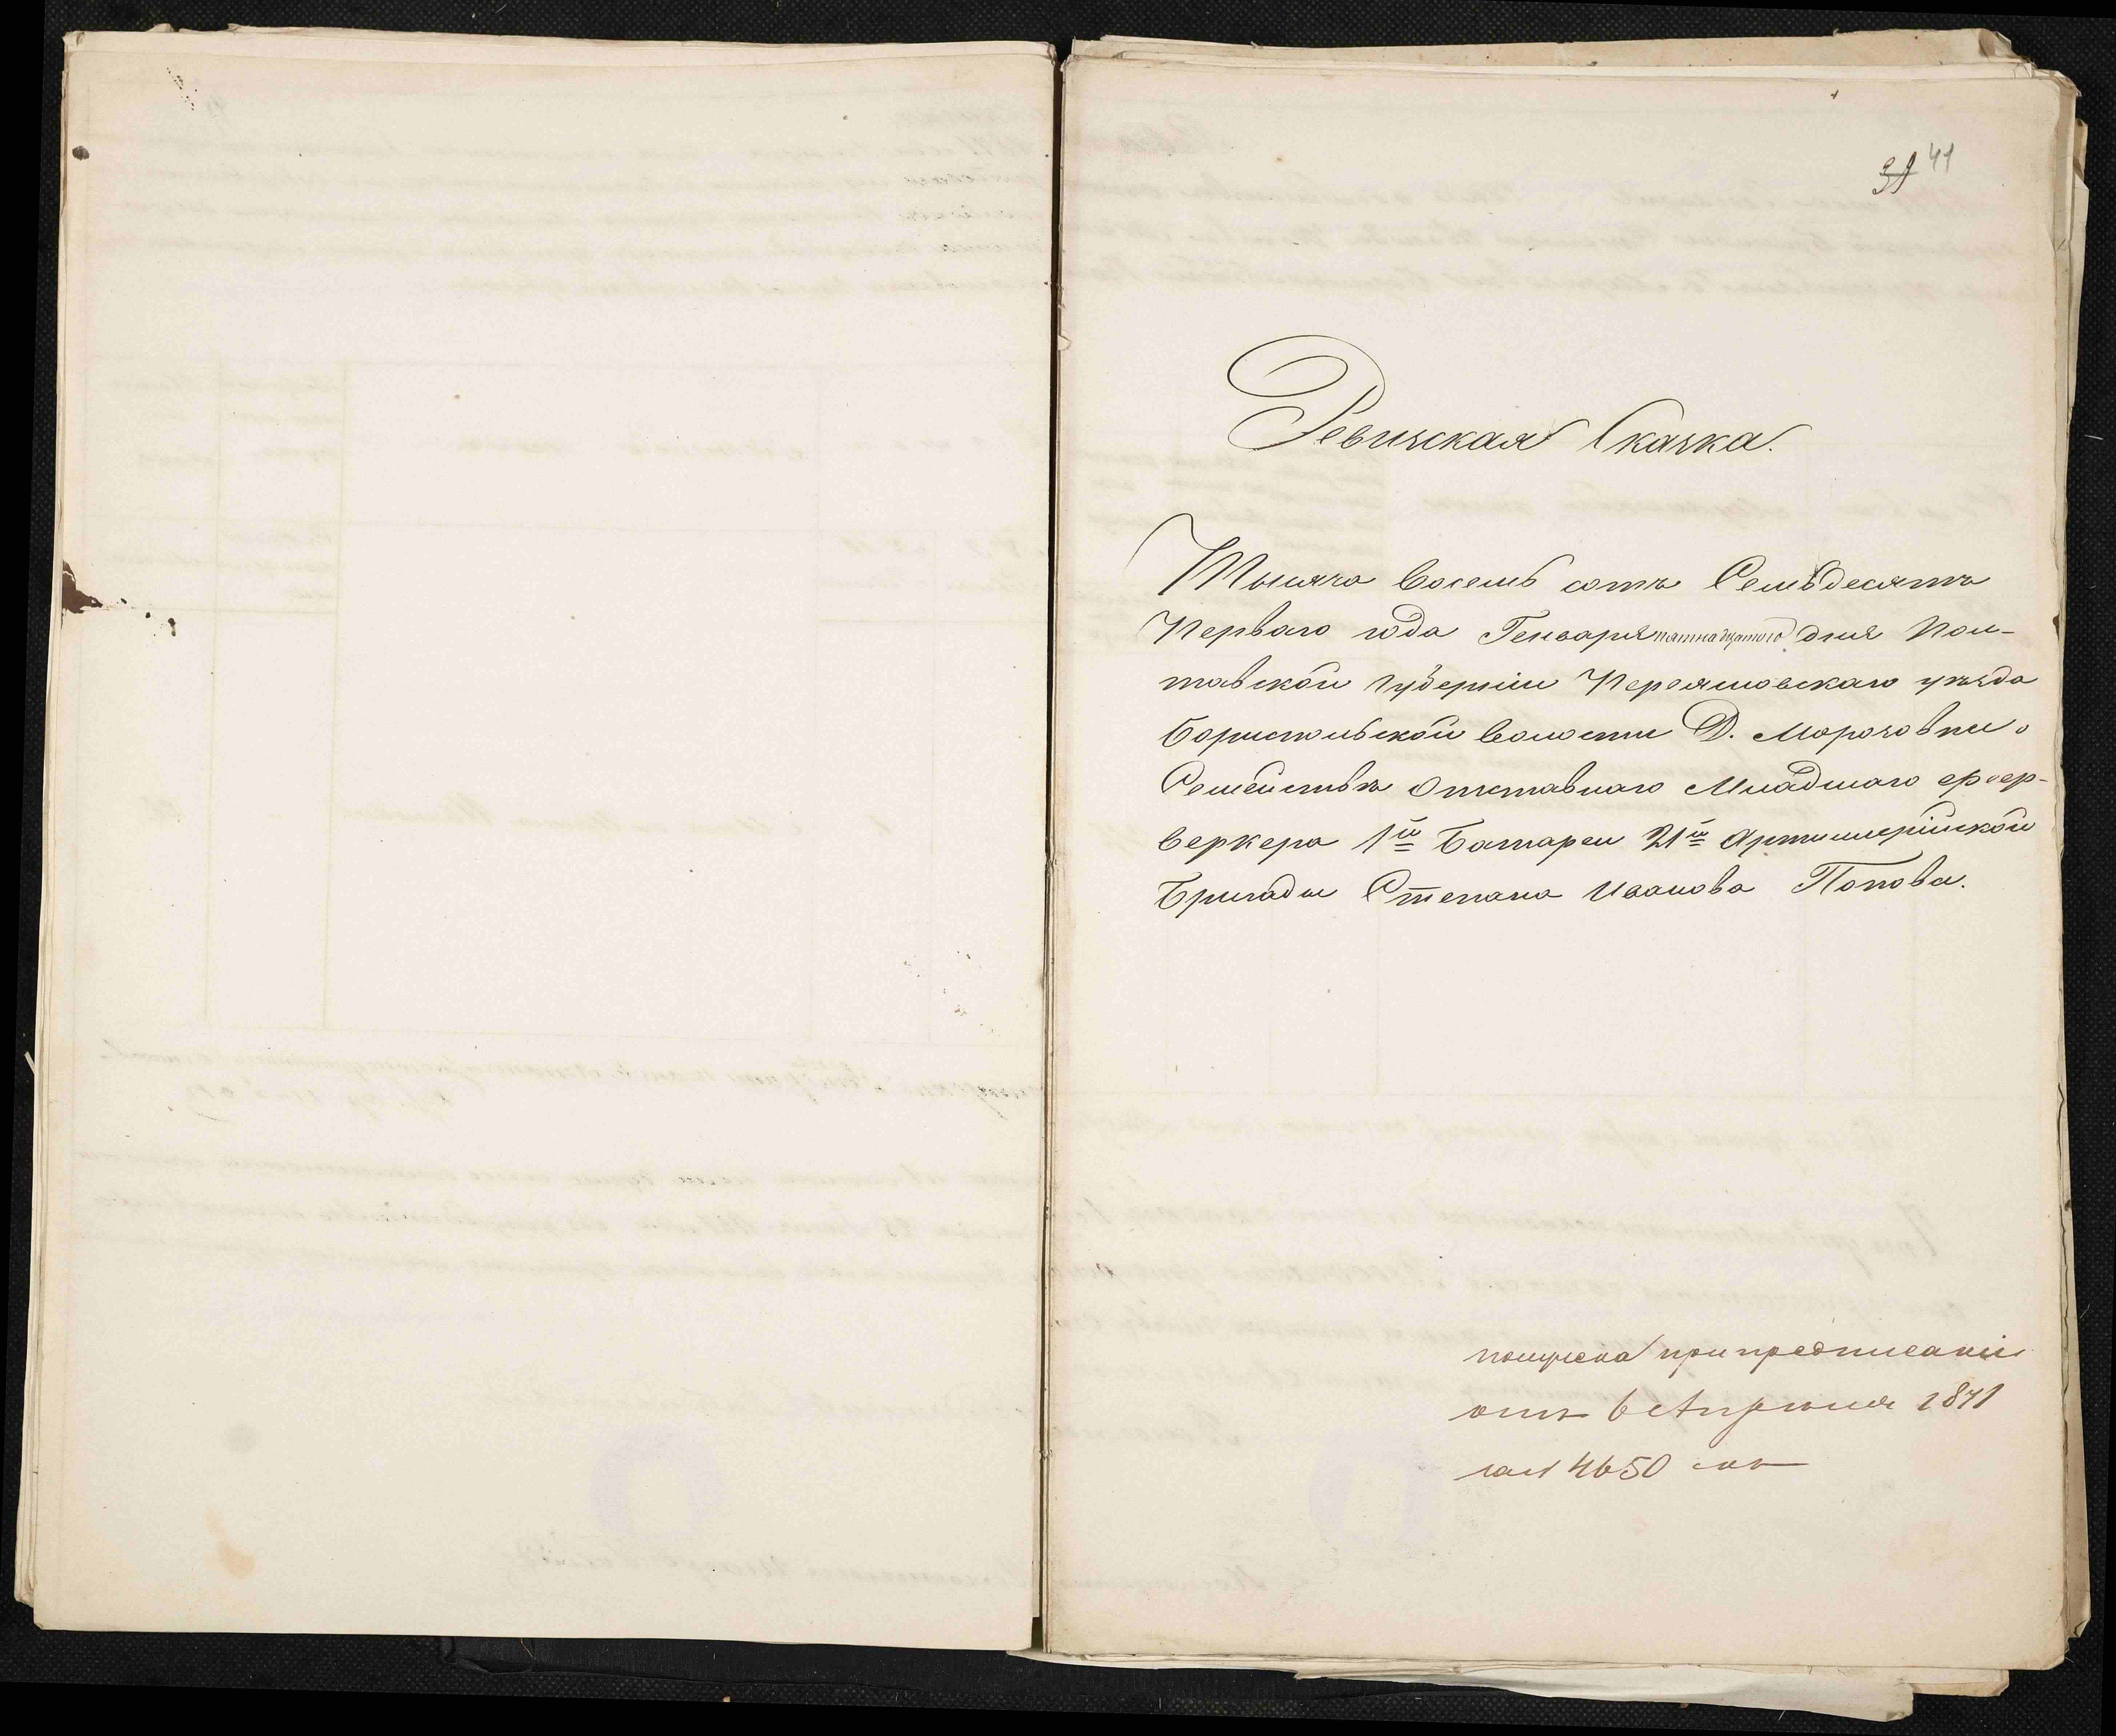 31 41
Ревизская Сказка.
Тысяча восемь сотъ Семьдесятъ
Перваго года Генваря пятнадцатого дня Пол-
тавской Губерніи Переяславскаго уѣзда
Бориспольской волости Д. Морозовки.
Семействѣ Отставнаго Младшаго феер-
веркера 1й Батареи 21й Артиллерійской
Бригады Степана Иванова Попова.
получена при предписаніи
отъ 6 Апрѣля 1871
4650